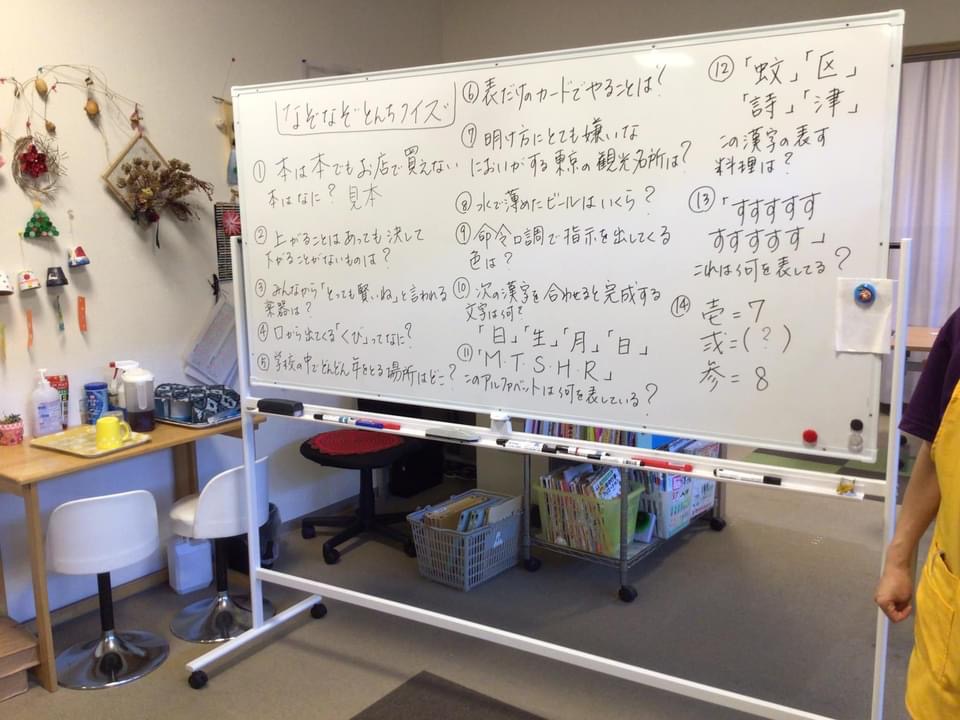 なぞなぞとんちクイズ
① 本は本でもお店で買えない
本はなに? 見本
② 上がることはあっても決して
下がることがないものは?
③ みんなから「とっても賢いね」と言われる
楽器は?
④ 口から出てくる「くび」ってなに?
⑤ 学校の中でどんどん年をとる場所はどこ?
⑥ 表だけのカードでやることは?
⑦ 明け方にとても嫌いな
においがする東京の観光名所は?
⑧ 水で薄めたビールはいくら?
⑨ 命令口調で指示を出してくる
色は?
⑩ 次の漢字を合わせると完成する
文字は何?
「日」「生」「月」「日」
⑪「M・T・S・H・R」
このアルファベットは何を表している?
⑫「蚊」「区」
「詩」「津」
この漢字の表す
料理は?
⑬「すすすすす
すすすすす」
これは何を表してる?
⑭ 壱=7
弐=(?)
参=8